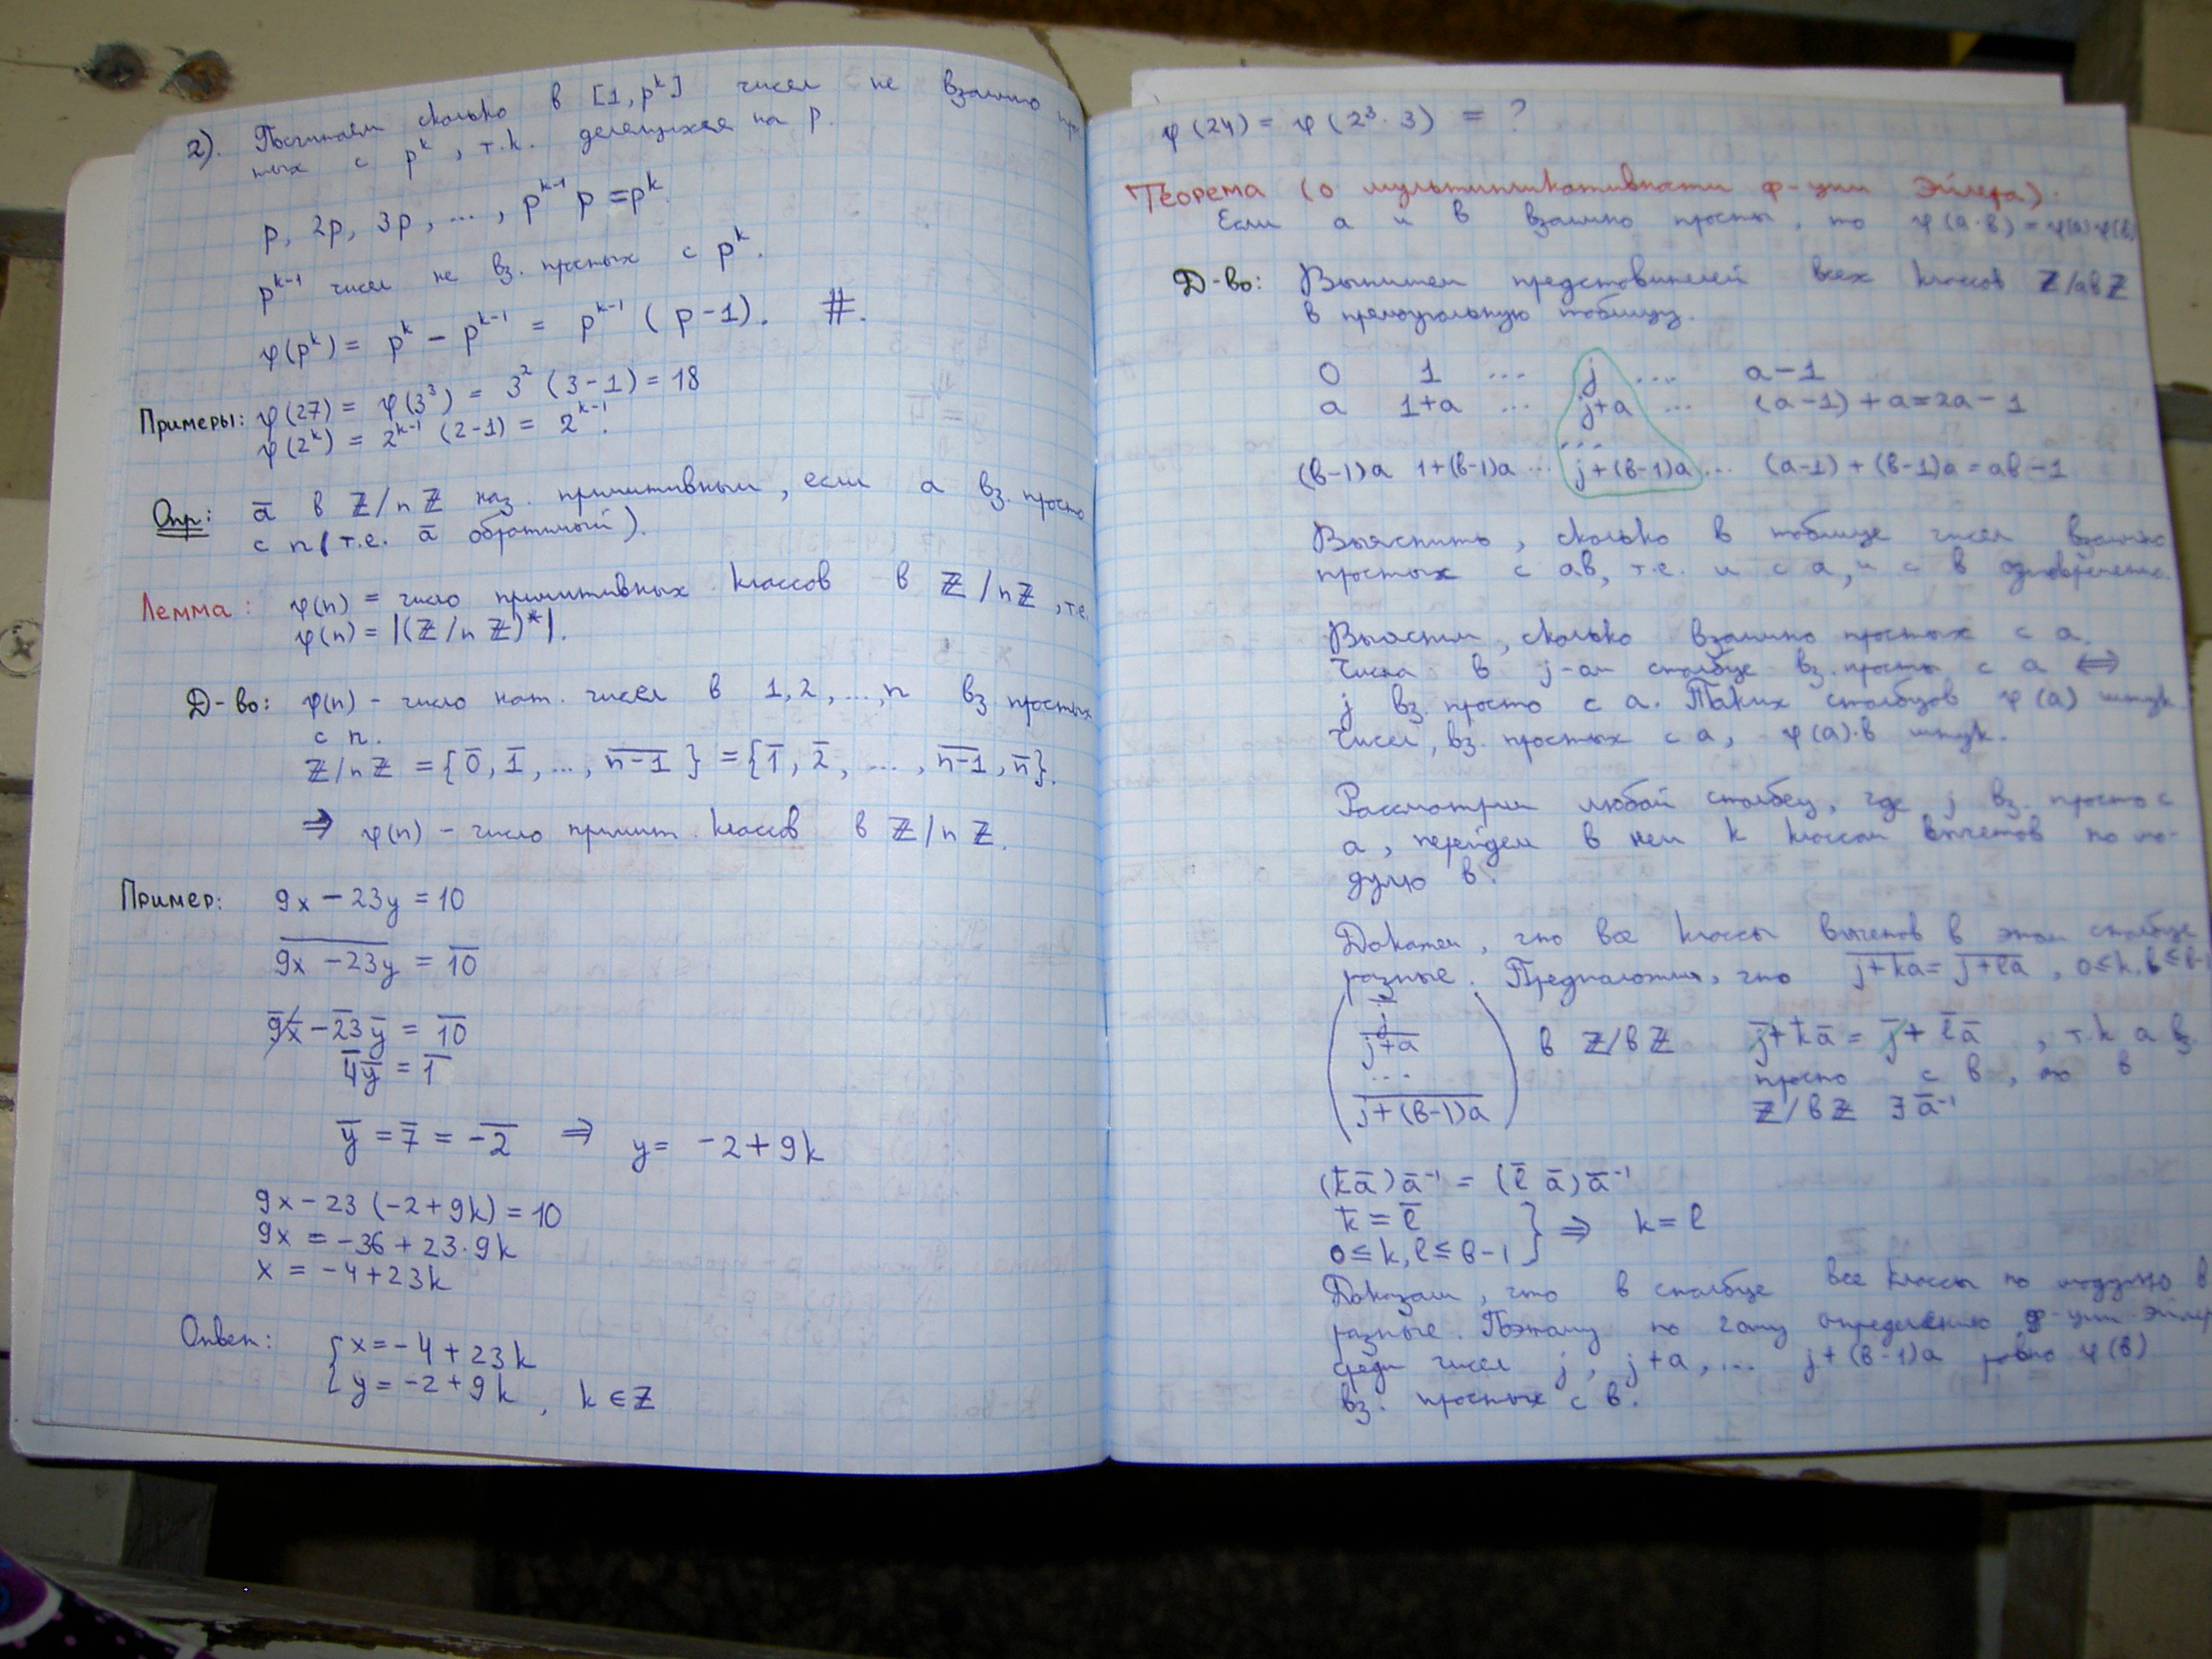 2). Посчитаем сколько в [1, p^k] чисел не взаимно прос-
тых с p^k, т.к. делящихся на p.
p, 2p, 3p, ..., p^{k-1} p = p^k.
p^{k-1} чисел не вз. простых с p^k.
φ(p^k) = p^k - p^{k-1} = p^{k-1} (p-1). #.
Примеры: φ(27) = φ(3^3) = 3^2 (3-1) = 18
φ(2^k) = 2^{k-1} (2-1) = 2^{k-1}.
Опр: a̅ в Z/nZ наз. примитивным, если a вз. просто
с n (т.е. a̅ обратимый).
Лемма: φ(n) = число примитивных классов в Z/nZ, т.е.
φ(n) = |(Z/nZ)*|.
Д-во: φ(n) - число нат. чисел в 1, 2, ..., n вз. простых
с n.
Z/nZ = {0̅, 1̅, ..., \overline{n-1}} = {1̅, 2̅, ..., \overline{n-1}, n̅}.
⇒ φ(n) - число примит. классов в Z/nZ.
Пример: 9x - 23y = 10
\overline{9x - 23y} = \overline{10}
9̅x̅ - \overline{23}y̅ = \overline{10}
4̅y̅ = 1̅
y̅ = 7̅ = -2̅ ⇒ y = -2 + 9k
9x - 23 (-2 + 9k) = 10
9x = -36 + 23·9k
x = -4 + 23k
Ответ: { x = -4 + 23k
y = -2 + 9k, k ∈ Z
φ(24) = φ(2^3·3) = ?
Теорема (о мультипликативности ф-ции Эйлера).
Если a и в взаимно просты, то φ(a·в) = φ(a)φ(в)
Д-во: Выпишем представителей всех классов Z/aвZ
в прямоугольную таблицу.
0 1 ... j ... a-1
a 1+a ... j+a ... (a-1)+a = 2a-1
...
(в-1)a 1+(в-1)a ... j+(в-1)a ... (a-1)+(в-1)a = aв-1
Выяснить, сколько в таблице чисел взаимно
простых с aв, т.е. и с a, и с в одновременно.
Выясним, сколько взаимно простых с a.
Числа в j-ом столбце вз. просты с a ⟺
j вз. просто с a. Таких столбцов φ(a) штук.
Чисел, вз. простых с a, - φ(a)·в штук.
Рассмотрим любой столбец, где j вз. просто с
a, перейдем в нем к классам вычетов по мо-
дулю в.
Докажем, что все классы вычетов в этом столбце
разные. Предположим, что \overline{j+ka} = \overline{j+la}, 0≤k, l≤в-1
( j̅
\overline{j+a}
...
\overline{j+(в-1)a} ) в Z/вZ j̅ + k̅a̅ = j̅ + l̅a̅, т.к a вз
просто с в, то в
Z/вZ ∃ a̅^{-1}
(k̅a̅)a̅^{-1} = (l̅a̅)a̅^{-1}
k̅ = l̅
0≤k, l≤в-1 } ⇒ k = l
Доказали, что в столбце все классы по модулю в
разные. Поэтому по определению ф-ции Эйлера
среди чисел j, j+a, ... j+(в-1)a ровно φ(в)
вз. простых с в.